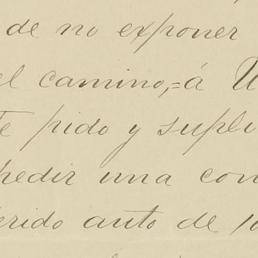 de no exponer
el camino,=á U
te pido y supli
pedir una con
erido auto de 10